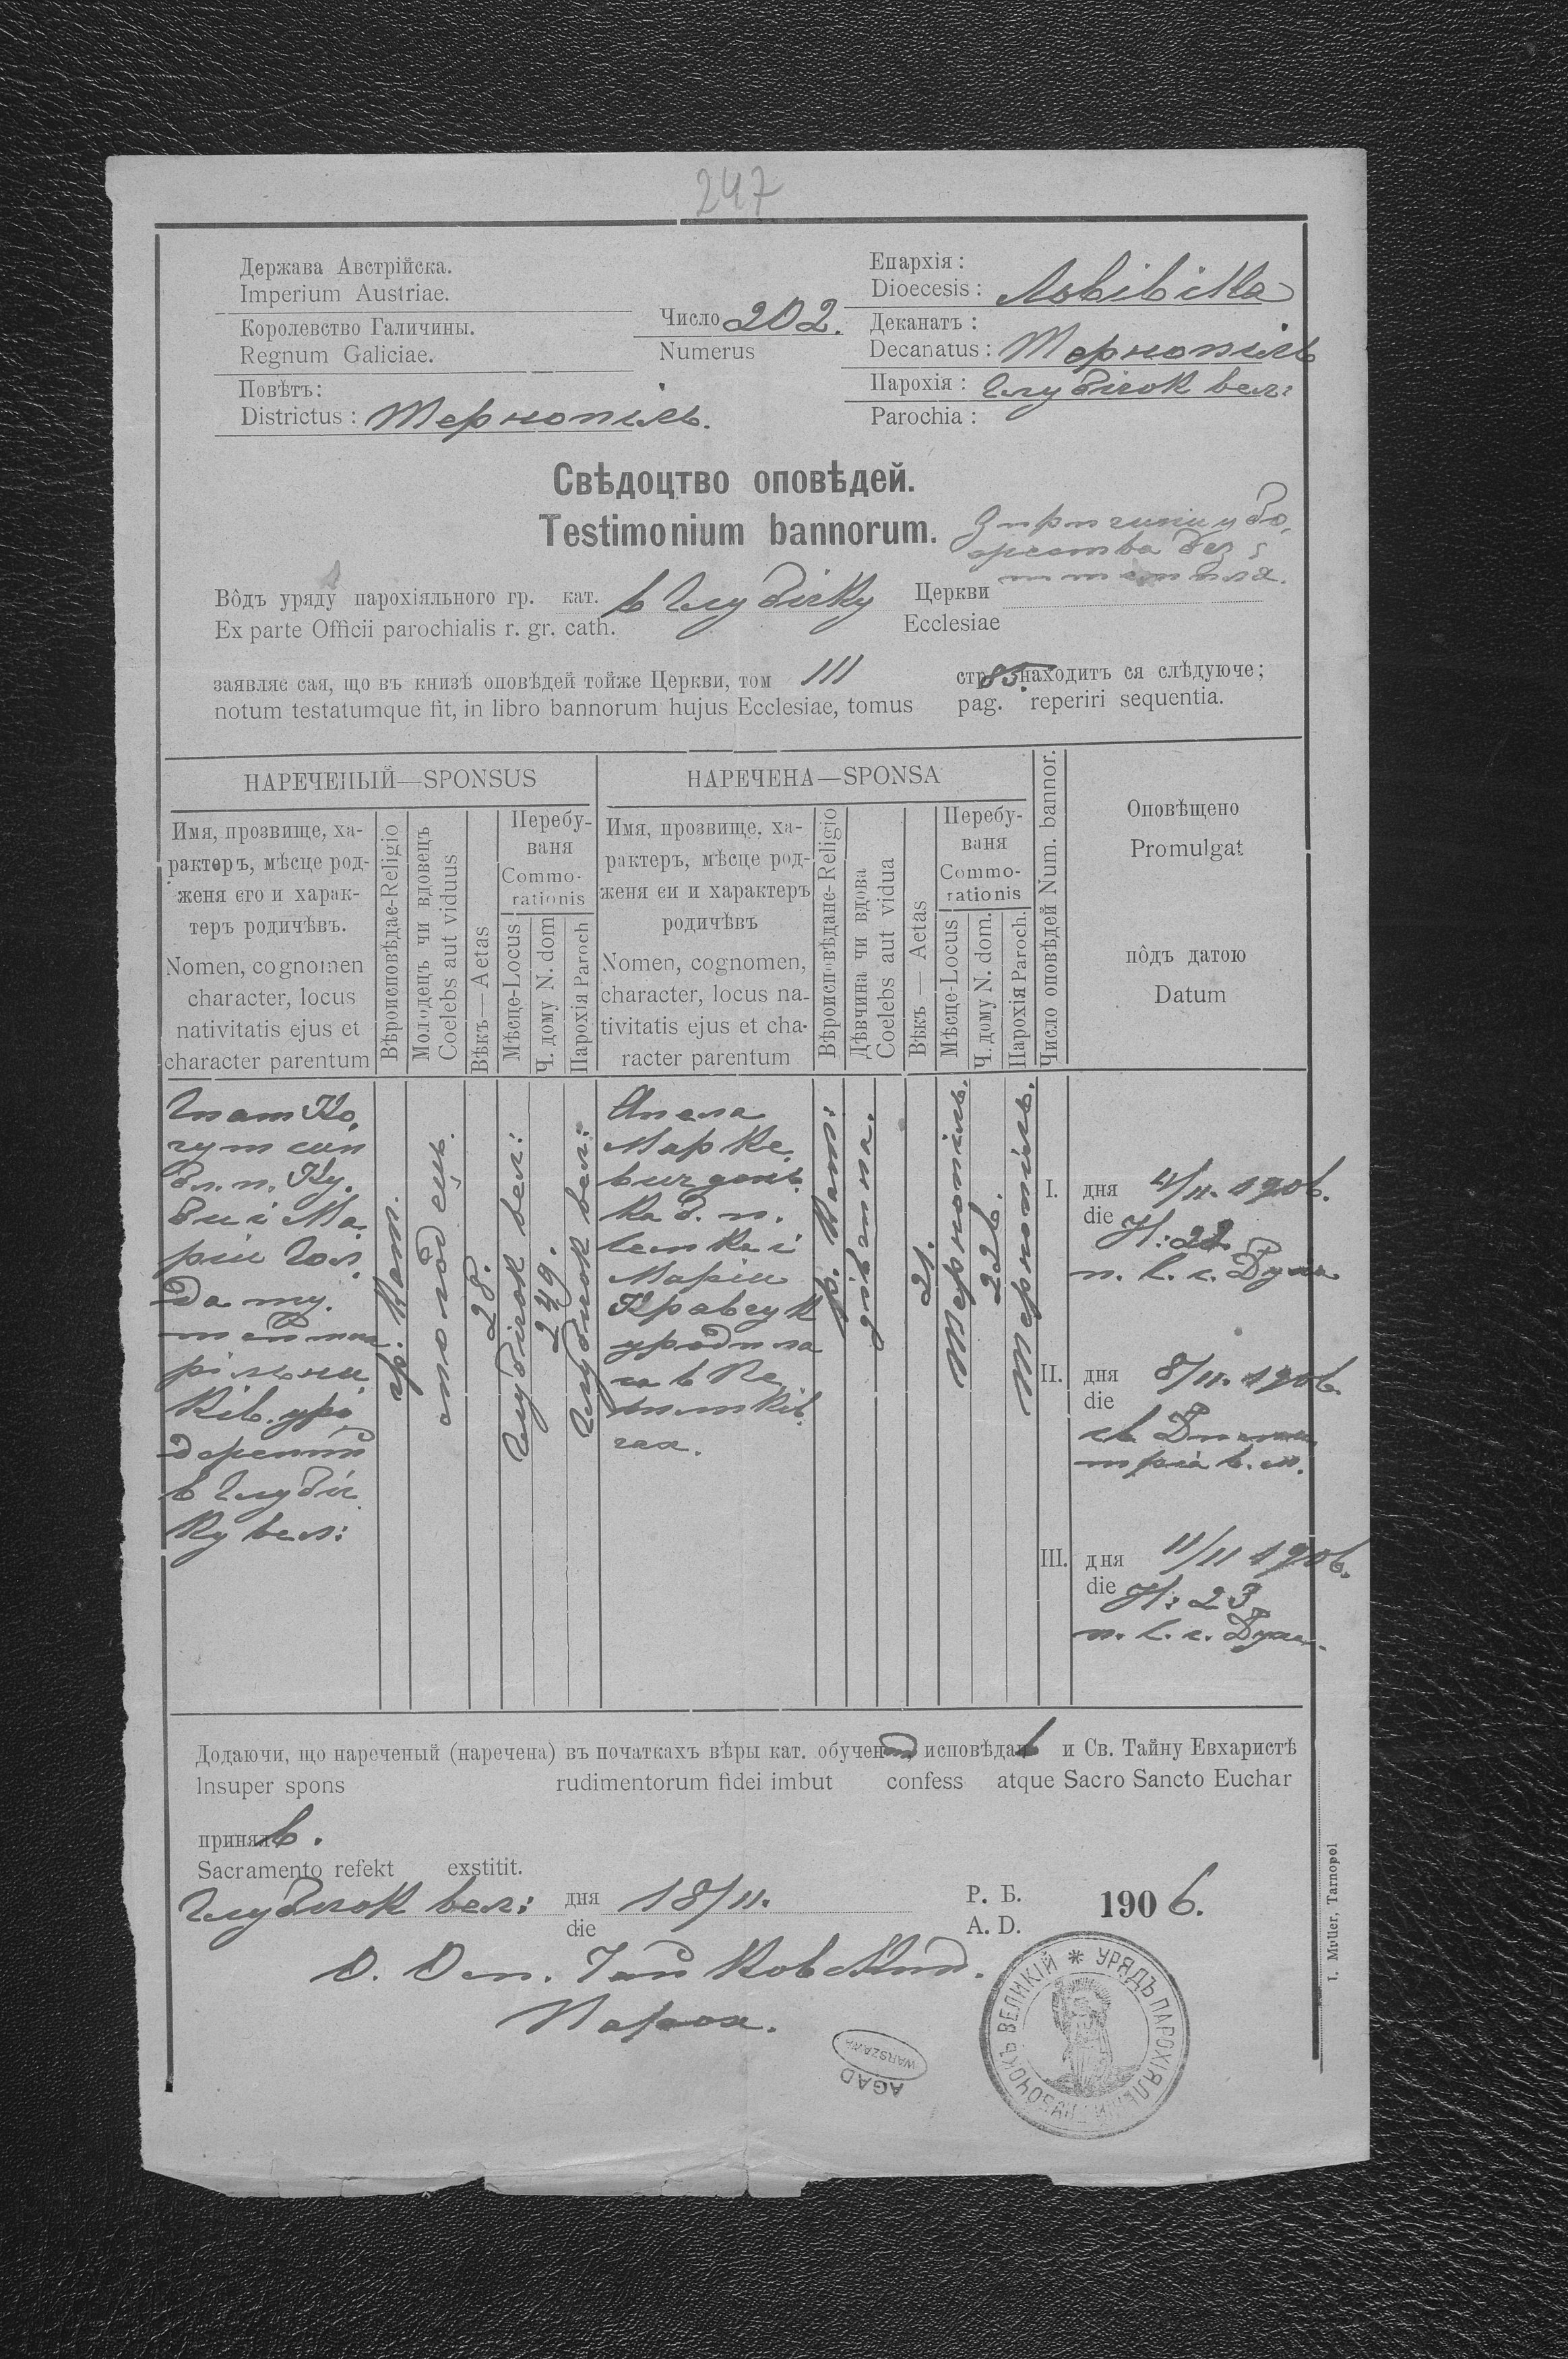 247
Держава Австрійска.
Imperium Austriae.
Королевство Галичины.
Regnum Galiciae.
Повѣтъ:
Districtus: Тернопіль.
Число 202.
Numerus
Епархія:
Dioecesis: Львівска
Деканатъ:
Decanatus: Тернопіль
Парохія: Глубічок вел:
Parochia:
Свѣдоцтво оповѣдей.
Testimonium bannorum.
З причини убо-
жества без
стемпля.
Вôдъ уряду парохіяльного гр. кат. в Глубічку Церкви
Ex parte Officii parochialis r. gr. cath. Ecclesiae
заявляє сая, що въ книзѣ оповѣдей тойже Церкви, том III стр 85. находитъ ся слѣдуюче;
notum testatumque fit, in libro bannorum hujus Ecclesiae, tomus pag. reperiri sequentia.
НАРЕЧЕНЫЙ—SPONSUS
НАРЕЧЕНА—SPONSA
Имя, прозвище, ха-
рактеръ, мѣсце род-
женя єго и харак-
теръ родичѣвъ.
Nomen, cognomen
character, locus
nativitatis ejus et
character parentum
Вѣроисповѣдає-Religio
Молодецъ чи вдовецъ
Coelebs aut viduus
Вѣкъ—Aetas
Перебу-
ваня
Commo-
rationis
Мѣсце-Locus
Ч. дому N. dom
Парохія Paroch
Имя, прозвище, ха-
рактеръ, мѣсце род-
женя єи и характеръ
родичѣвъ
Nomen, cognomen,
character, locus na-
tivitatis ejus et cha-
racter parentum
Вѣроисповѣдане-Religio
Дѣвчина чи вдова
Coelebs aut vidua
Вѣкъ — Aetas
Перебу-
ваня
Commo-
rationis
Мѣсце-Locus
Ч. дому N. dom.
Парохія Paroch.
Число оповѣдей Num. bannor.
Оповѣщено
Promulgat
пôдъ датою
Datum
Ігнат Ко-
гут син
бл. п. Ку-
би і Ма-
рії Гол-
да ту-
тейших
рільни-
ків. уро-
джений
в Глубіч-
ку вел:
гр. кат.
молодець.
28.
Глубічок вел:
249.
Глубічок вел:
Анеля
Марке-
вич донь-
ка б. п.
Семка і
Марії
Кравчук
уродила
гр. кат:
дівчина.
21.
Тернопіль.
226.
Тернопіль.
I. дня 4/11. 1906.
die Н: 22
п. С. с. Духа
II. дня 8/11. 1906.
die
св. Дими-
трія в. м.
III. дня 11/11 1906.
die Н: 23
п. С. с. Духа.
Додаючи, що нареченый (наречена) въ початкахъ вѣры кат. обучений исповѣдавъ и Св. Тайну Евхаристѣ
Insuper spons rudimentorum fidei imbut confess atque Sacro Sancto Euchar
принявъ.
Sacramento refekt exstitit.
Глубічок вел: дня 18/11. Р. Б. 1906.
die A. D.
Парох.
УРЯДЪ ПАРОХІЯЛЬНИЙ ГЛУБОЧОКЪ ВЕЛИКІЙ
AGAD
WARSZAWA
I. Muller, Tarnopol